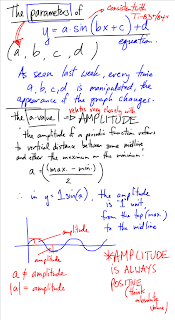 The parameters of
consistently
y = a·sin(bx+c)+d
equation.
(a, b, c, d)
As seen last week, every time
a, b, c, d, is manipulated, the
appearance of the graph changes.
relates very closely with
The a-value => AMPLITUDE
the amplitude of a periodic function refers
to vertical distance between some midline
and either the maximum or the minimum.
a = (max. - min.)
2
∴ in y = 1 sin(x), the amplitude
is "1" unit,
from the top (max.)
to the midline
amplitude
amplitude
a ≠ amplitude
|a| = amplitude
*AMPLITUDE
IS ALWAYS
POSITIVE
(think
absolute
value)